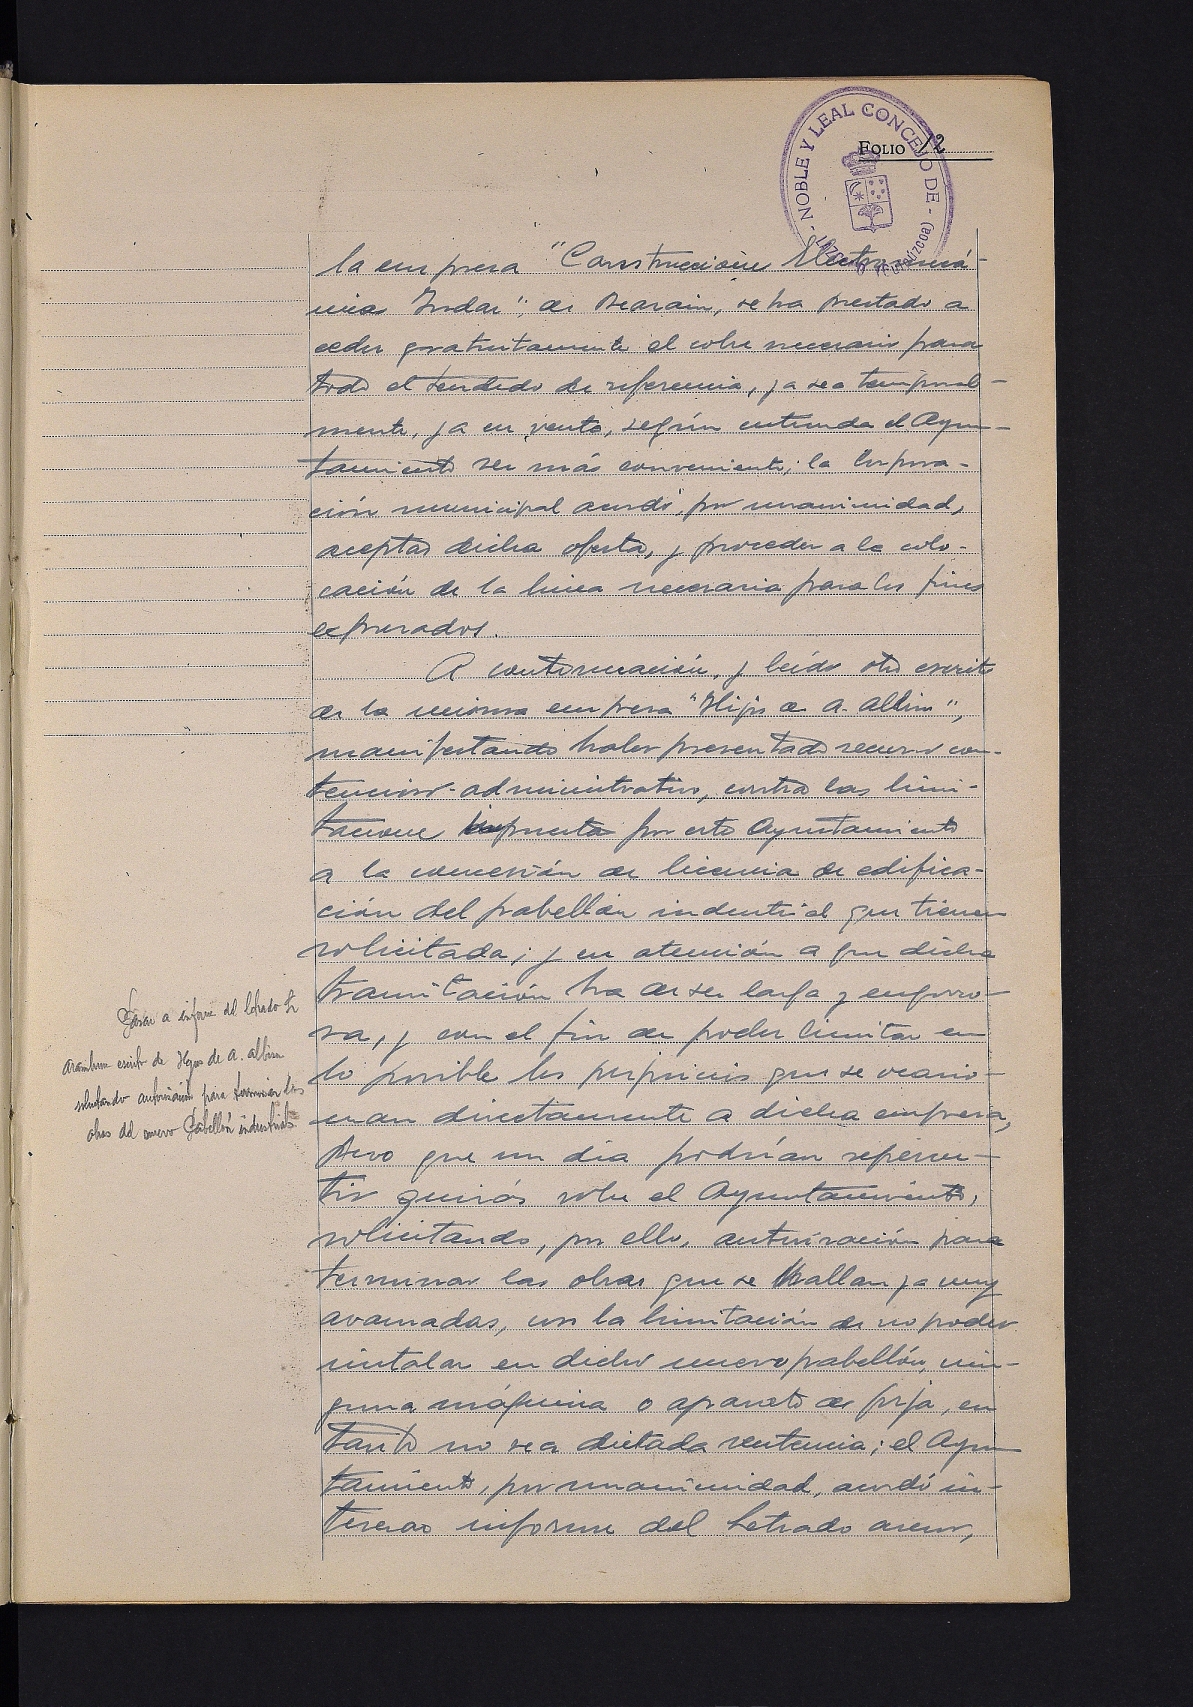 NOBLE Y LEAL CONCEJO DE
(GUIPÚZCOA)
FOLIO 12
la empresa "Construcciones Electromecá-
nicas Indar", de Beasain, se ha prestado a
ceder gratuitamente el cobre necesario para
todo el tendido de referencia, ya sea temporal-
mente, ya en venta, según entienda el Ayun-
tamiento ser más conveniente; la Corpora-
ción municipal acordó, por unanimidad,
aceptar dicha oferta, y proceder a la colo-
cación de la línea necesaria para los fines
expresados.
A continuación, y leído otro escrito
de la misma empresa "Hijos de A. Albisu",
manifestando haber presentado recurso con-
tencioso-administrativo, contra las limi-
taciones impuesta por este Ayuntamiento
a la concesión de licencia de edifica-
ción del pabellón industrial que tienen
solicitada; y en atención a que dicha
tramitación ha de ser larga y engorro-
sa, y con el fin de poder limitar en
lo posible los perjuicios que se ocasio-
nan directamente a dicha empresa,
pero que un día podrían repercu-
tir quizás sobre el Ayuntamiento,
solicitando, por ello, autorización para
terminar las obras que se hallan ya muy
avanzadas, con la limitación de no poder
instalar en dicho nuevo pabellón, nin-
guna máquina o aparato de forja, en
tanto no sea dictada sentencia; el Ayun-
tamiento, por unanimidad, acordó in-
teresar informe del Letrado asesor,
Pasar a informe del letrado Sr
Aramburu escrito de Hijos de A. Albisu
solicitando autorización para terminar las
obras del nuevo Pabellón industrial.